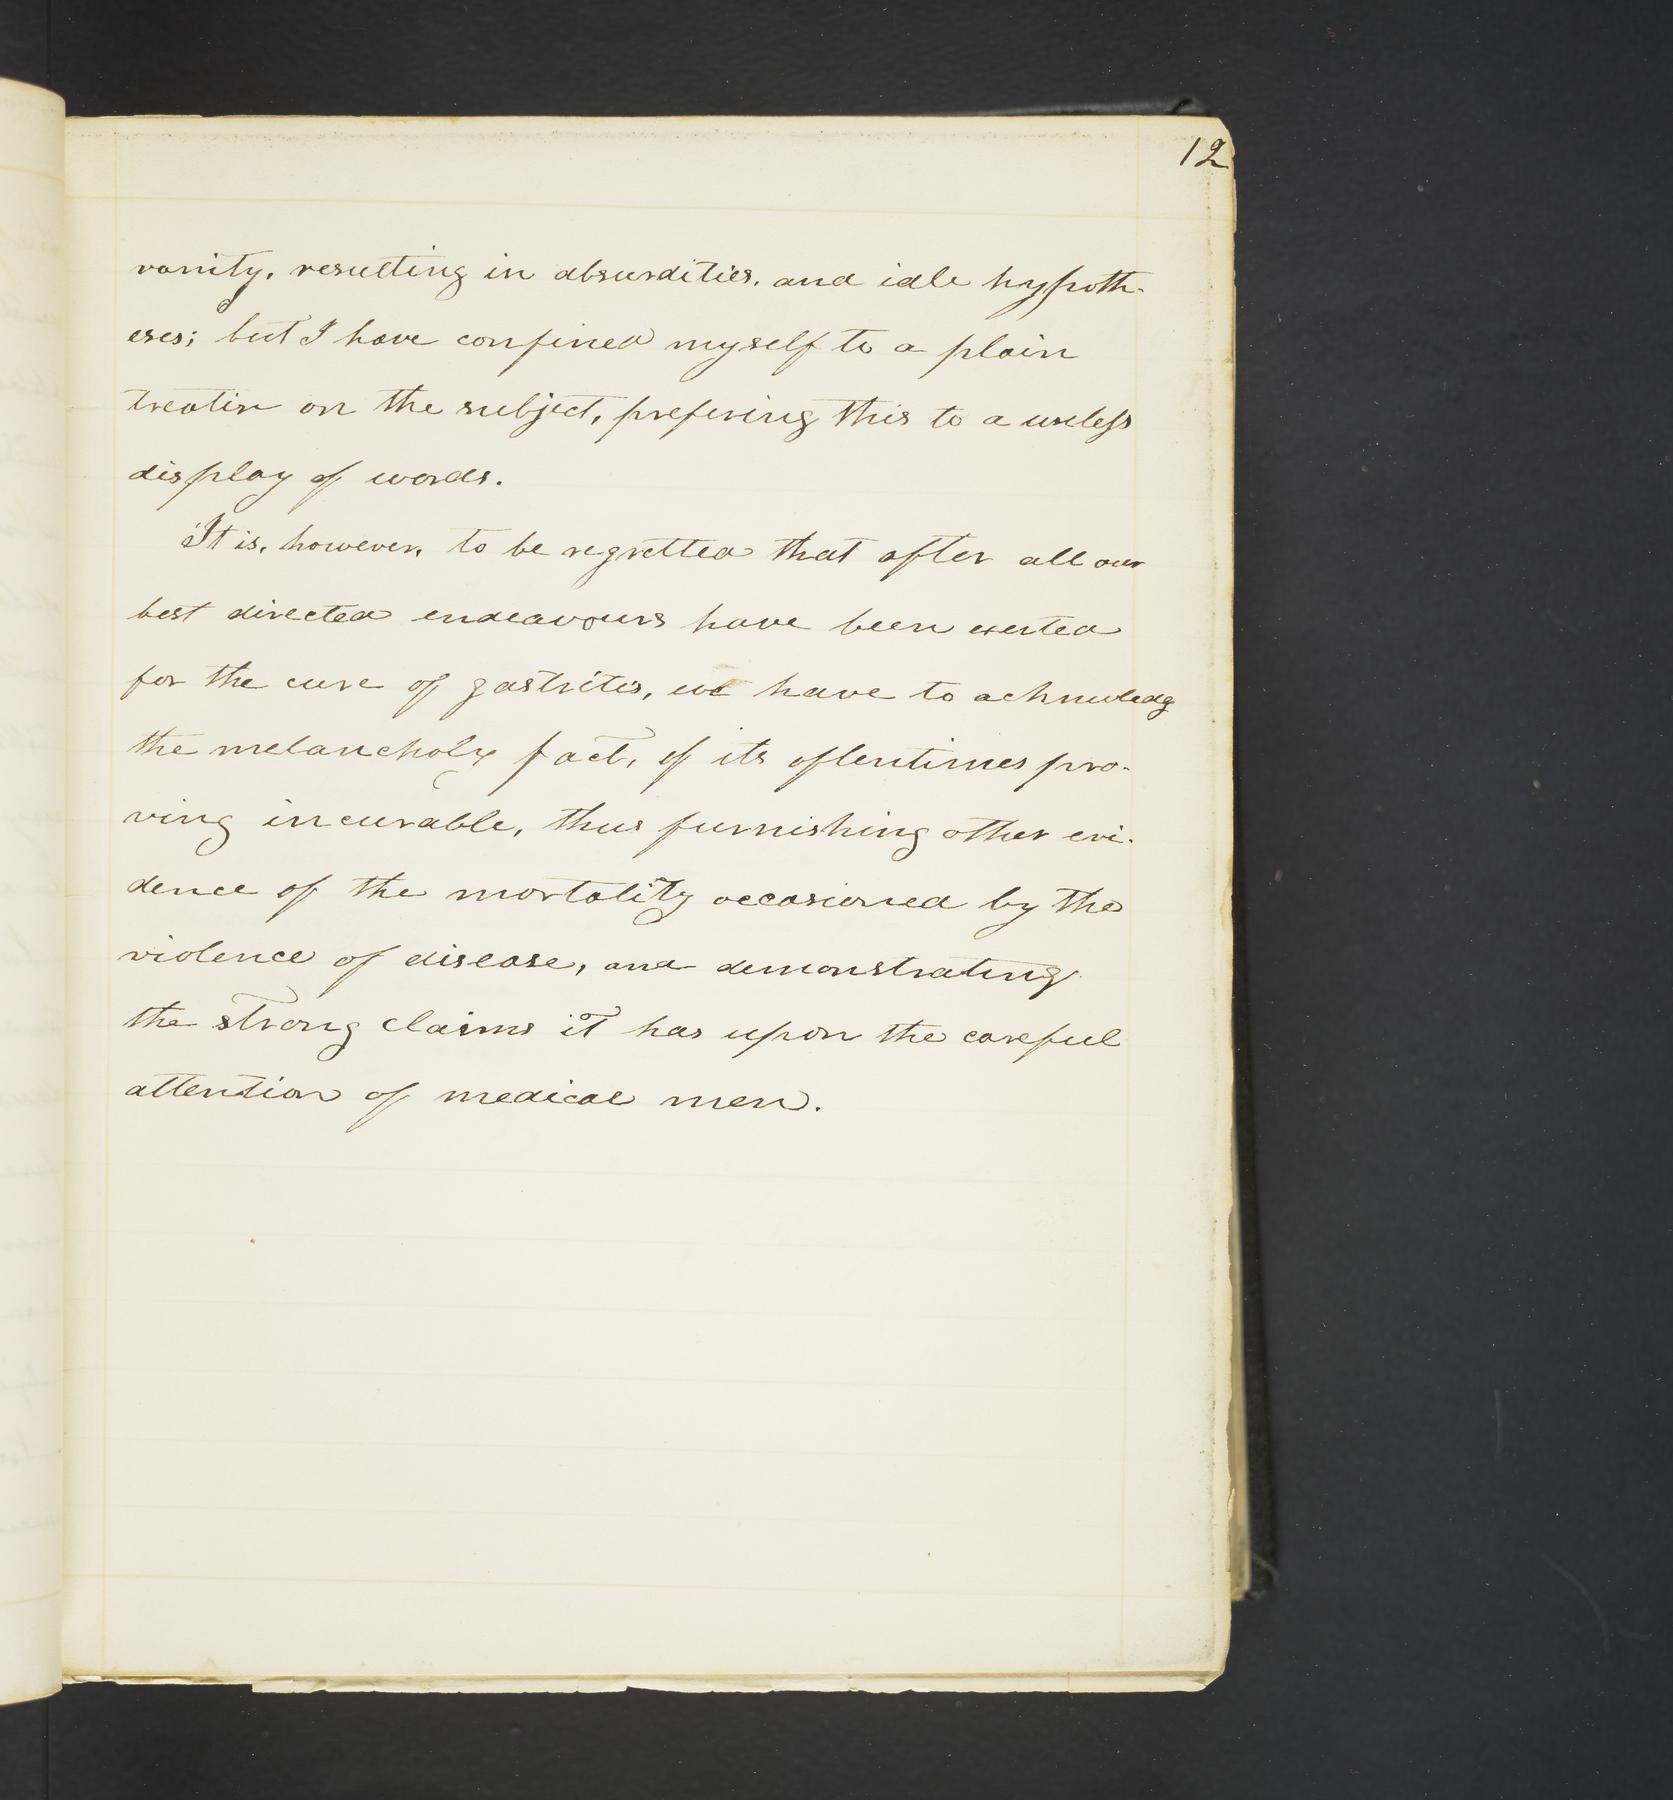 12
vanity, resulting in absurdities, and idle hypoth-
eses; but I have confined myself to a plain
treatise on the subject, prefering this to a useless
display of words.
It is, however, to be regretted that after all our
best directed endeavours have been exerted
for the cure of gastritis, we have to acknowledg
the melancholy fact, of its oftentimes pro-
ving incurable, thus furnishing other evi-
dence of the mortality occasioned by the
violence of disease, and demonstrating
the strong claims it has upon the careful
attention of medical men.